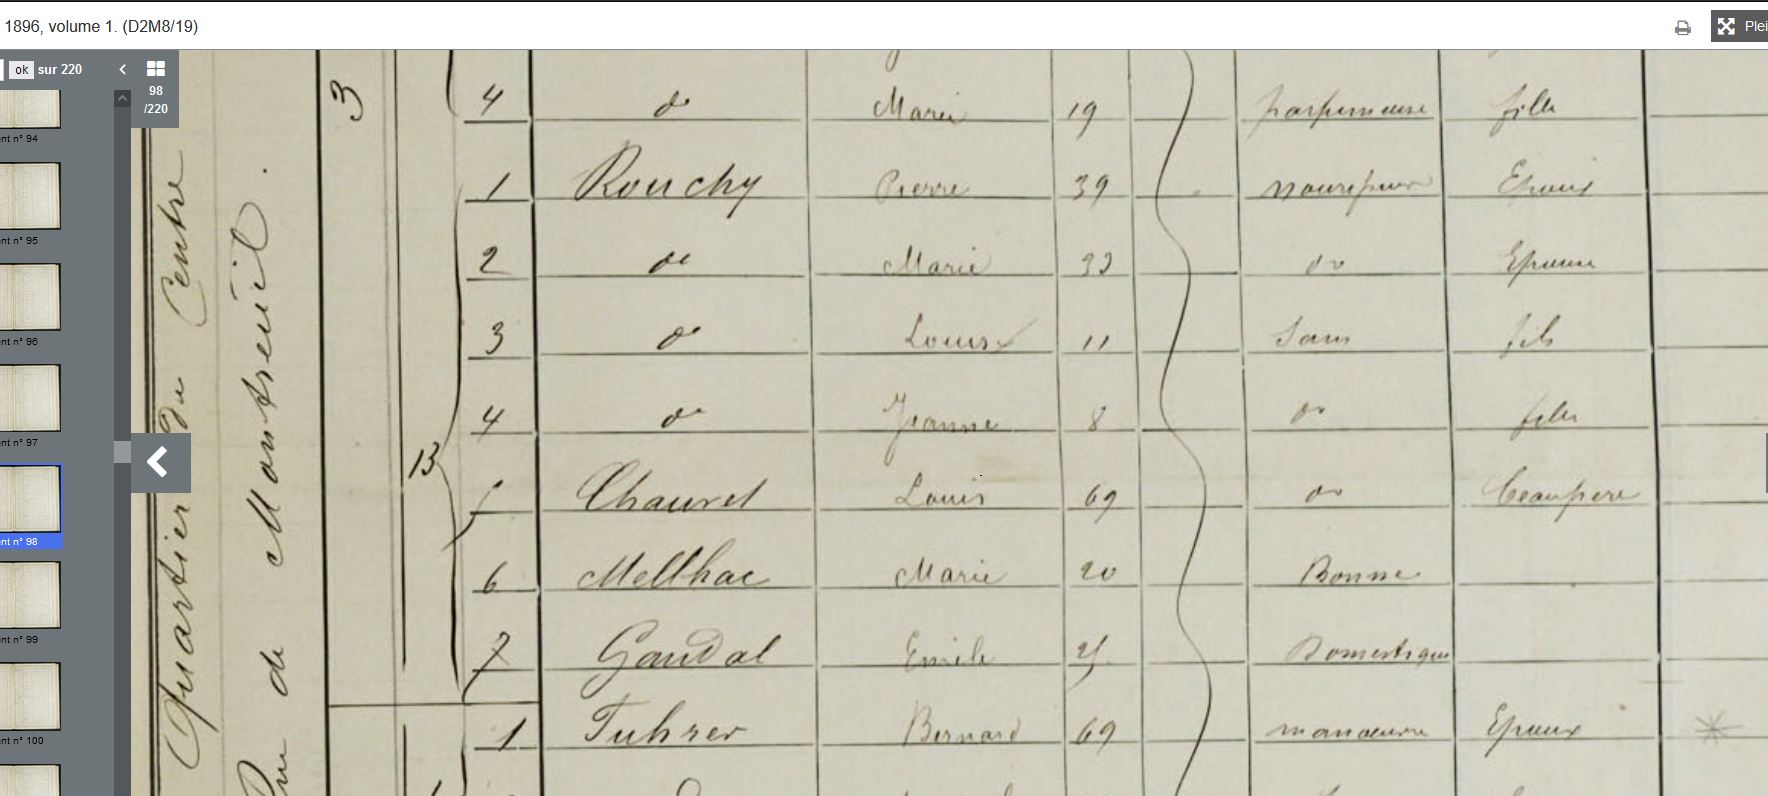 1896, volume 1. (D2M8/19)
Plei
ok sur 220
98
/220
nt n° 94
ent n° 95
ent n° 96
ent n° 97
ent n° 98
ent n° 99
nt n° 100
Quartier du Centre
Rue de Montreuil.
3
4 do Marie 19 parfumeuse fille
13
1 Rouchy Pierre 39 nourrisseur Epoux
2 do Marie 33 do Epouse
3 do Louis 11 Sans fils
4 do Jeanne 8 do fille
5 Chauvet Louis 69 do Beaupere
6 Mellhac Marie 20 Bonne
7 Gaudal Emile 25 Domestique
1 Tuhrer Bernard 69 manoeuvre Epoux